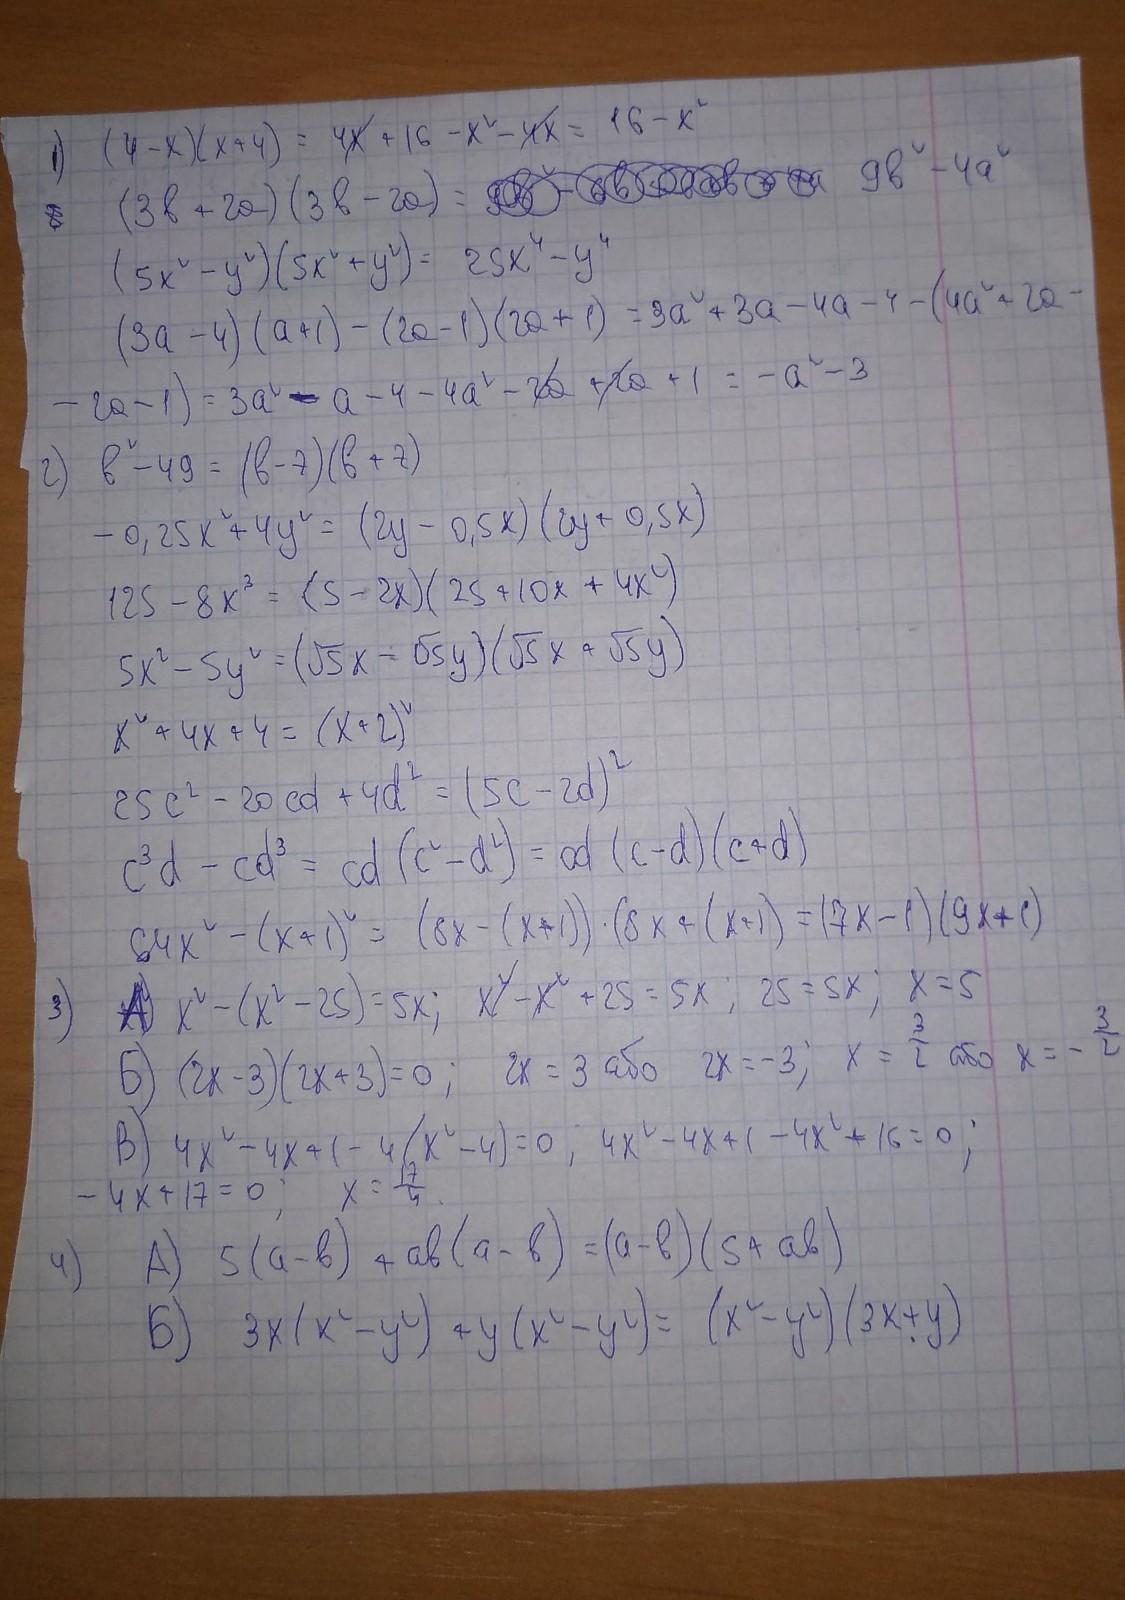 1) (4-x)(x+4) = 4x + 16 - x² - 4x = 16 - x²
(3в + 2a)(3в - 2a) = 9в² - 4a²
(5x² - y²)(5x² + y²) = 25x⁴ - y⁴
(3a - 4)(a+1) - (2a-1)(2a+1) = 3a² + 3a - 4a - 4 - (4a² + 2a -
- 2a - 1) = 3a² - a - 4 - 4a² - 2a + 2a + 1 = -a² - 3
2) в² - 49 = (в-7)(в+7)
-0,25x² + 4y² = (2y - 0,5x)(2y + 0,5x)
125 - 8x³ = (5 - 2x)(25 + 10x + 4x²)
5x² - 5y² = (√5x - √5y)(√5x + √5y)
x² + 4x + 4 = (x+2)²
25c² - 20cd + 4d² = (5c - 2d)²
c³d - cd³ = cd(c² - d²) = cd(c-d)(c+d)
64x² - (x+1)² = (8x - (x+1))·(8x + (x+1) = (7x-1)(9x+1)
3) А) x² - (x² - 25) = 5x; x² - x² + 25 = 5x; 25 = 5x; x = 5
Б) (2x-3)(2x+3) = 0; 2x = 3 або 2x = -3; x = 3/2 або x = -3/2
В) 4x² - 4x + 1 - 4(x² - 4) = 0; 4x² - 4x + 1 - 4x² + 16 = 0;
-4x + 17 = 0; x = 17/4.
4) А) 5(a-в) + aв(a-в) = (a-в)(5 + aв)
Б) 3x(x² - y²) + y(x² - y²) = (x² - y²)(3x + y)